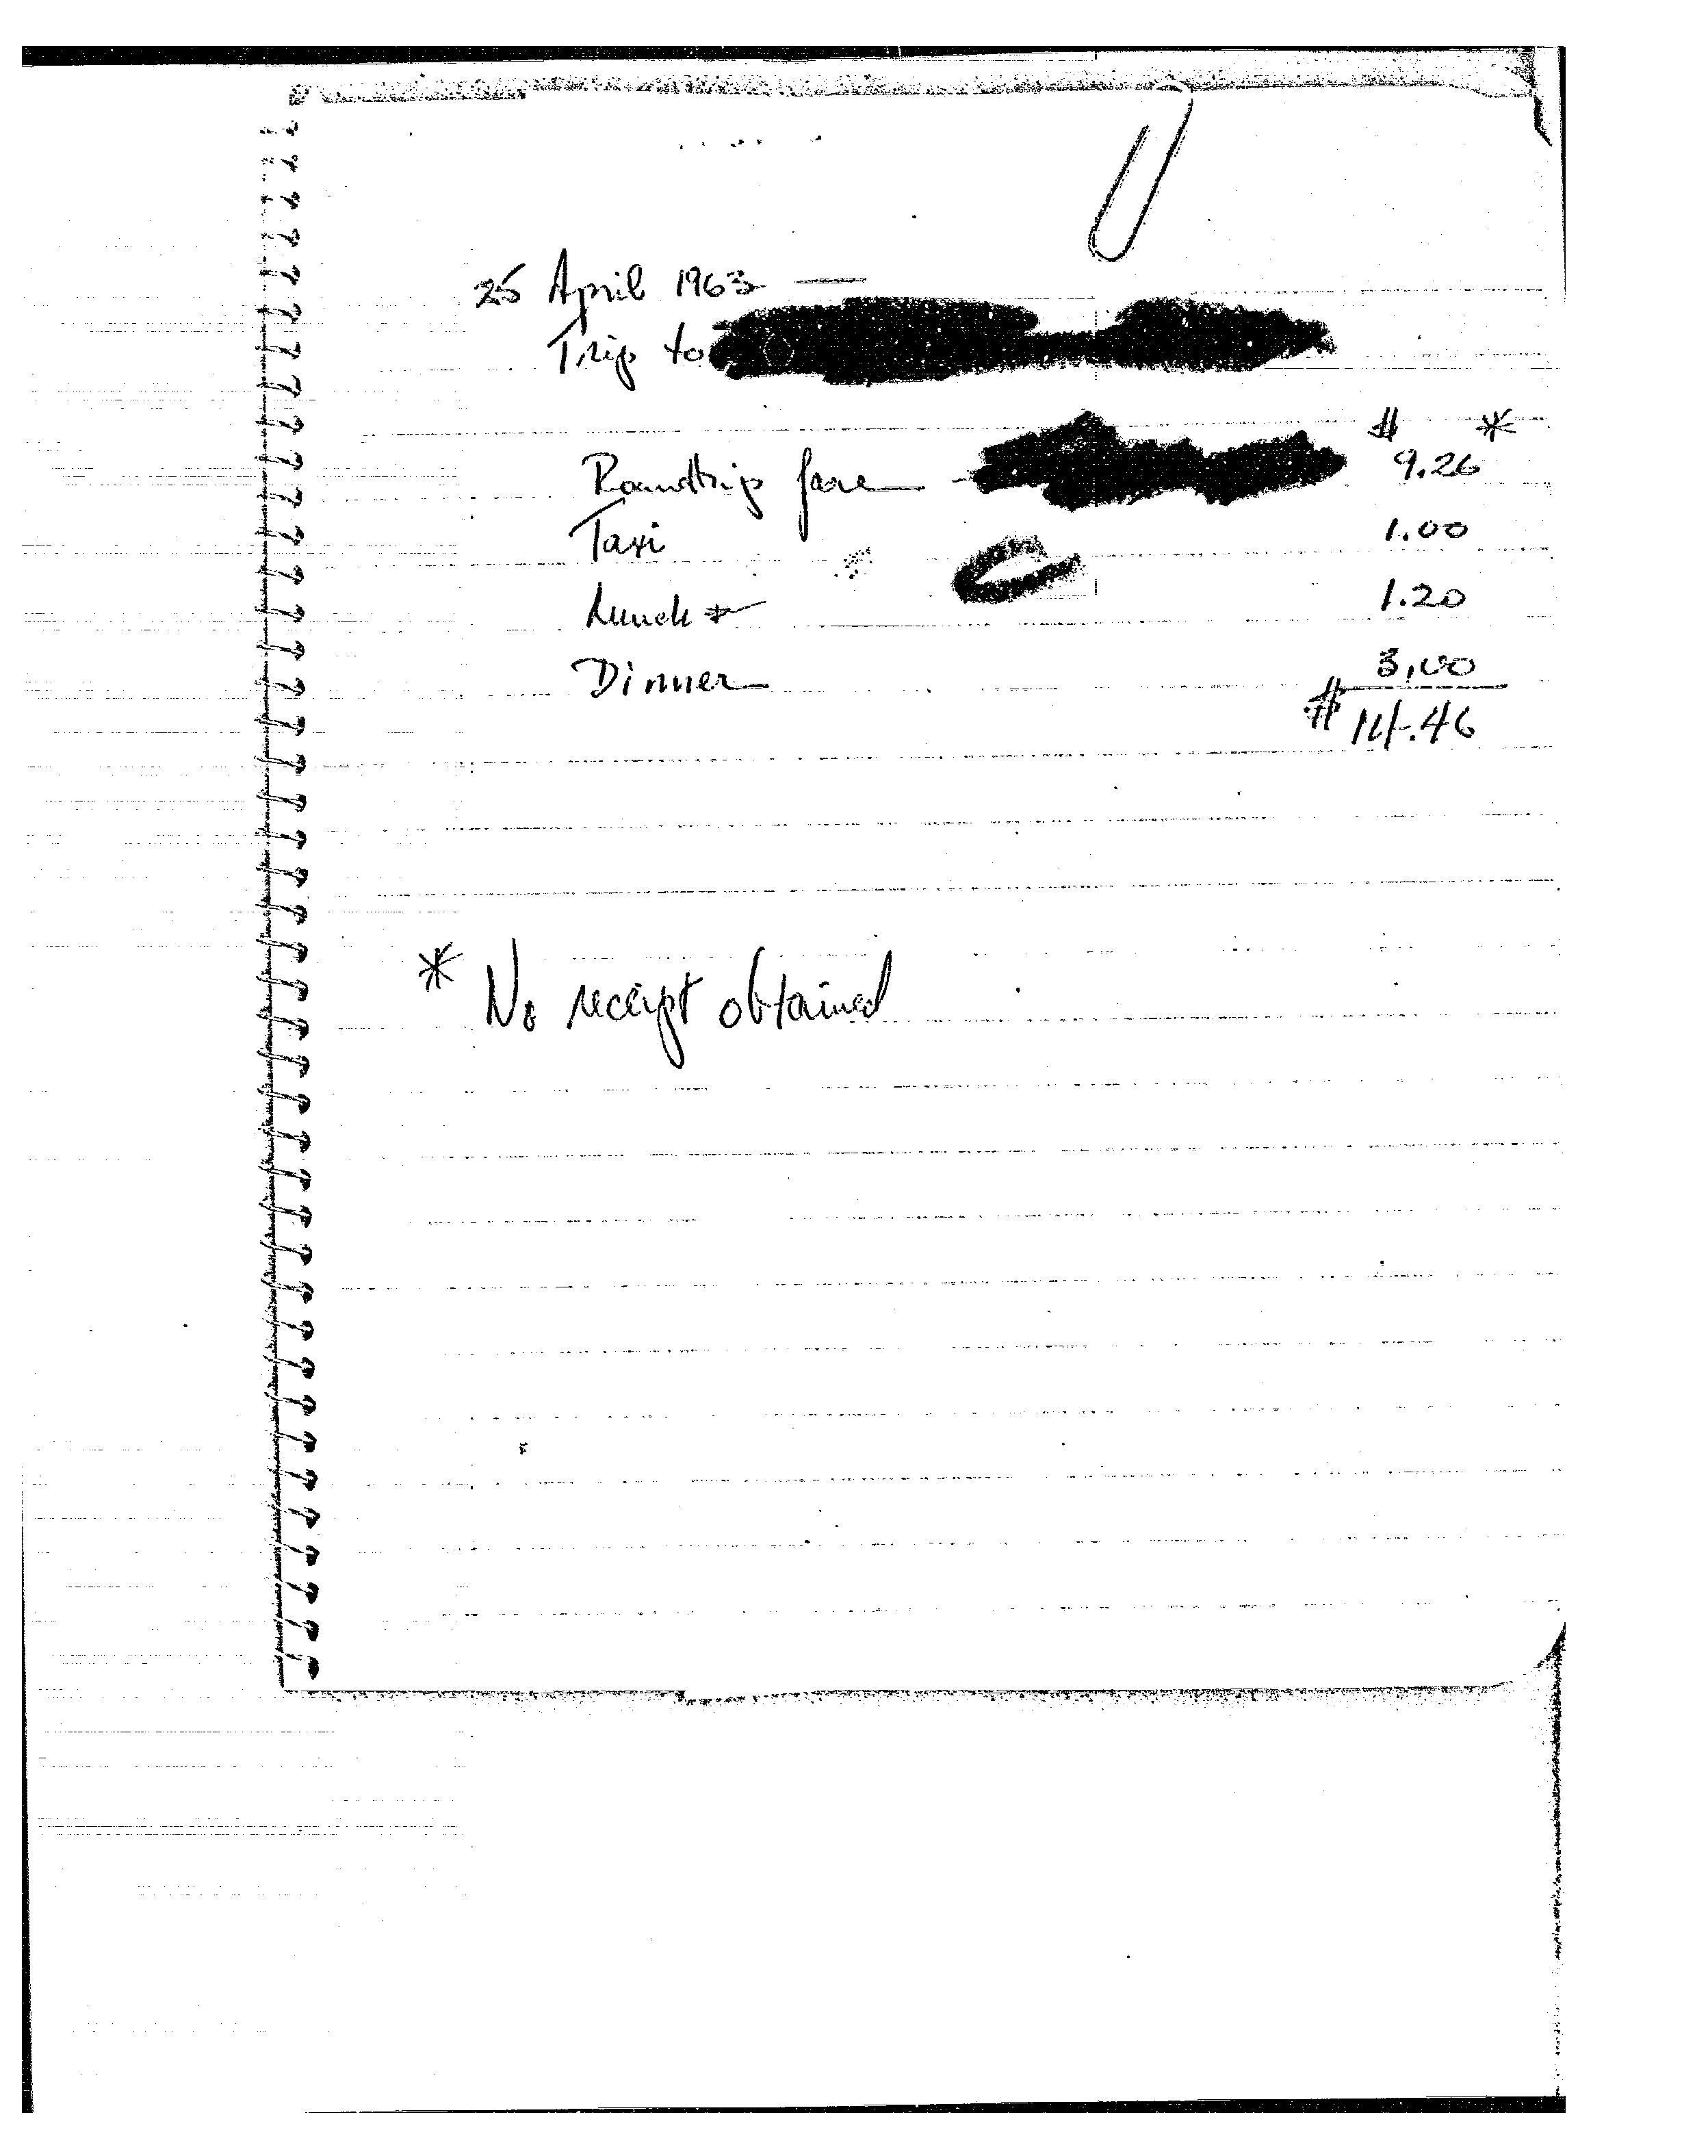 25 April 1963 —
Trip to
$ *
Roundtrip fare — 9.26
Taxi 1.00
Lunch 1.20
Dinner 3.00
$ 14.46
* No receipt obtained